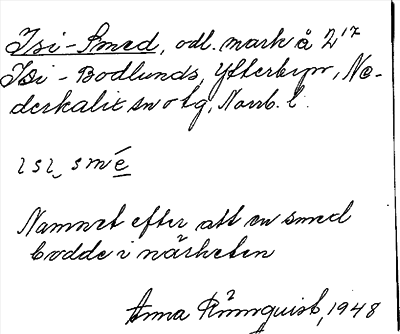 Isi-Smed, odl. mark å 2¹⁷
Isi-Bodlunds, Ytterbyn, Ne-
derkalix sn o tg, Norrb. l.
ɪsɪ smé
Namnet efter att en smed
bodde i närheten
Anna Rönnquist, 1948